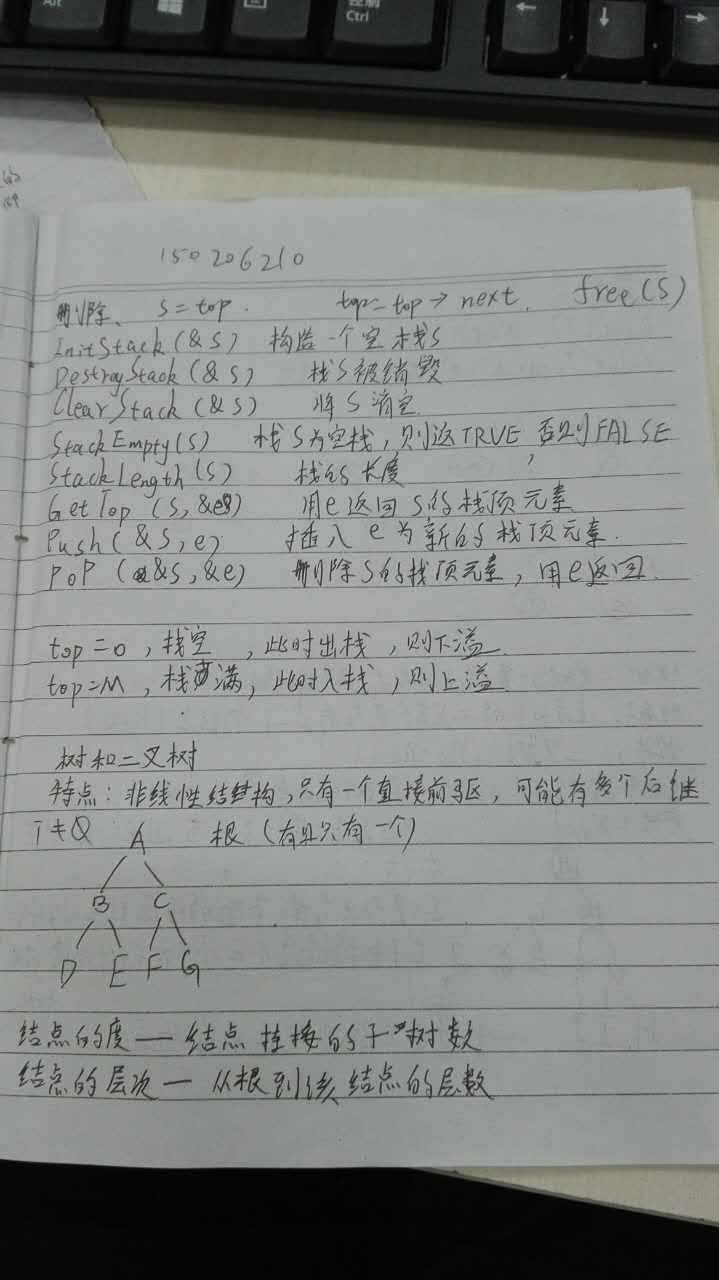 Alt
控制
Ctrl
← ↓ →
150206210
删除、 s=top. top=top→next. free(S)
InitStack(&S) 构造一个空栈S
DestroyStack(&S) 栈S被销毁
ClearStack(&S) 将S清空
StackEmpty(S) 栈S为空栈,则返TRUE,否则FALSE
StackLength(S) 栈的长度
GetTop (S,&e) 用e返回S的栈顶元素
Push(&S,e) 插入e为新的栈顶元素.
POP (&S,&e) 删除S的栈顶元素,用e返回.
top=0,栈空,此时出栈,则下溢
top=M,栈满,此时入栈,则上溢
树和二叉树
特点:非线性结构,只有一个直接前驱,可能有多个后继
T≠Q A 根(有且只有一个)
B C
D E F G
结点的度—结点挂接的子树数
结点的层次—从根到该结点的层数